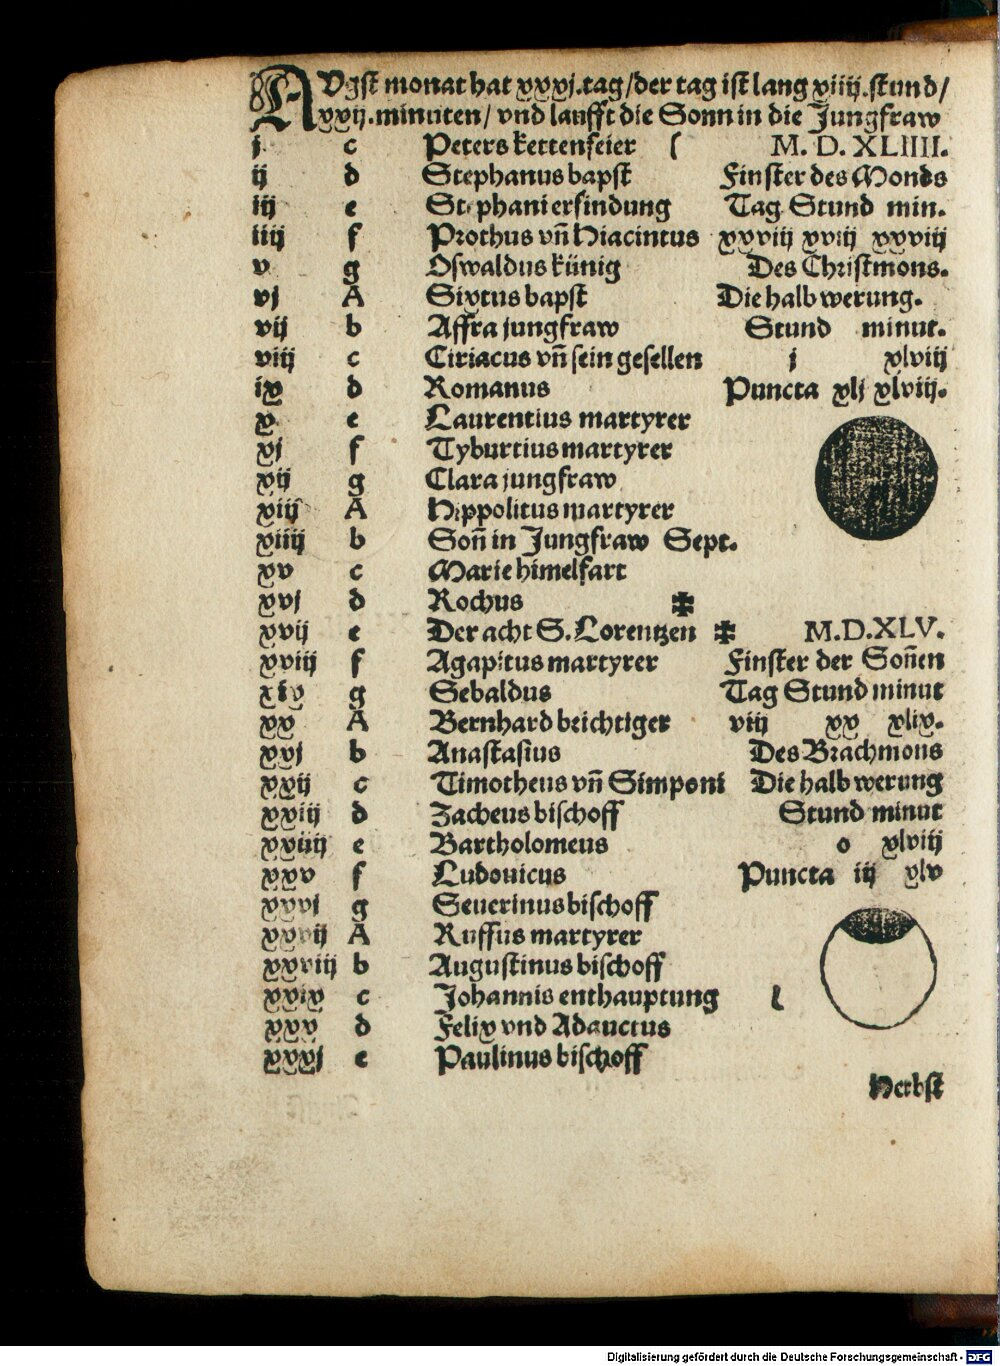 AVgst monat hat xxxj.tag/der tag ist lang xiiij.stund/
xxij.minuten/ vnd laufft die Sonn in die Jungfraw
j c Peters kettenfeier ſ M. D. XLIIII.
ij d Stephanus bapst Finster des Monds
iij e Stephani erfindung Tag Stund min.
iiij f Prothus vñ Hiacintus xxviij xviij xxviij
v g Oswaldus künig Des Christmons.
vj A Sixtus bapst Die halb werung.
vij b Affra jungfraw Stund minut.
viij c Ciriacus vñ sein gesellen j xlviij
ix d Romanus Puncta xlj xlviij.
x e Laurentius martyrer
xj f Tyburtius martyrer
xij g Clara jungfraw
xiij A Hippolitus martyrer
xiiij b Soñ in Jungfraw Sept.
xv c Marie himelfart
xvj d Rochus ‡
xvij e Der acht S. Lorentzen ‡ M.D.XLV.
xviij f Agapitus martyrer Finster der Soñen
xix g Sebaldus Tag Stund minut
xx A Bernhard beichtiger viij xx xlix.
xxj b Anastasius Des Brachmons
xxij c Timotheus vñ Simponi Die halb werung
xxiij d Zacheus bischoff Stund minut
xxiiij e Bartholomeus o xlviij
xxv f Ludouicus Puncta iij xlv
xxvj g Seuerinus bischoff
xxvij A Ruffus martyrer
xxviij b Augustinus bischoff
xxix c Johannis enthauptung l
xxx d Felix vnd Adauctus
xxxj e Paulinus bischoff
Herbst
Digitalisierung gefördert durch die Deutsche Forschungsgemeinschaft - DFG